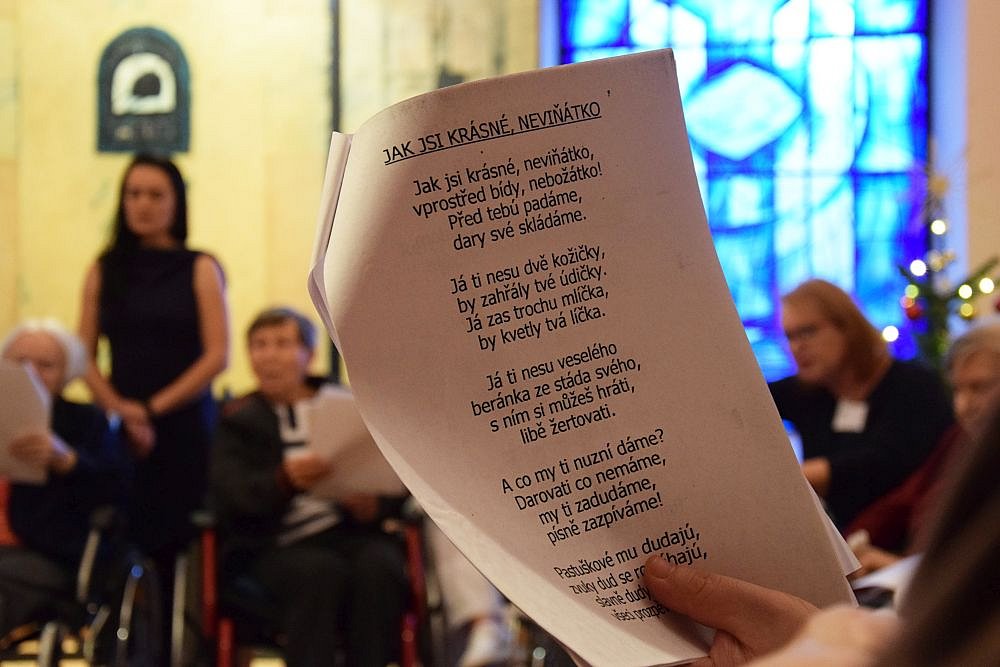 JAK JSI KRÁSNÉ, NEVIŇÁTKO
Jak jsi krásné, neviňátko,
vprostřed bídy, nebožátko!
Před tebú padáme,
dary své skládáme.
Já ti nesu dvě kožičky,
by zahřály tvé údičky.
Já zas trochu mlíčka,
by kvetly tvá líčka.
Já ti nesu veselého
beránka ze stáda svého,
s ním si můžeš hráti,
libě žertovati.
A co my ti nuzní dáme?
Darovati co nemáme,
my ti zadudáme,
písně zazpíváme!
Pastuškové mu dudajú,
zvuky dud se
slavné dudy
všeci